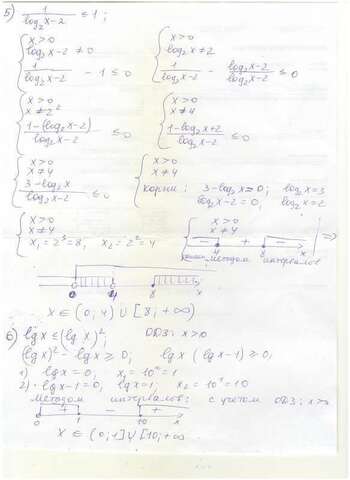 5) 1/(log₂x-2) ≤ 1;
{ x>0 { x>0
log₂x-2≠0 log₂x≠2
1/(log₂x-2) - 1 ≤ 0 1/(log₂x-2) - (log₂x-2)/(log₂x-2) ≤ 0
{ x>0 { x>0
x≠2² x≠4
(1-(log₂x-2))/(log₂x-2) ≤ 0 (1-log₂x+2)/(log₂x-2) ≤ 0
{ x>0 { x>0
x≠4 x≠4
(3-log₂x)/(log₂x-2) ≤ 0 корни: 3-log₂x=0, log₂x=3
log₂x-2=0, log₂x=2
{ x>0 { x>0
x≠4 x≠4
x₁=2³=8, x₂=2²=4 - 4 + 8 - x =>
методом интервалов
0 4 8 x
x ∈ (0; 4) ∪ [8; +∞)
6) lgx ≤ (lgx)²; ОДЗ: x>0
(lgx)² - lgx ≥ 0, lgx (lgx-1) ≥ 0;
1) lgx=0, x₁=10⁰=1
2) lgx-1=0, lgx=1; x₂=10¹=10
методом интервалов: с учетом ОДЗ: x>
0 + 1 - 10 + x
x ∈ (0;1] ∪ [10; +∞